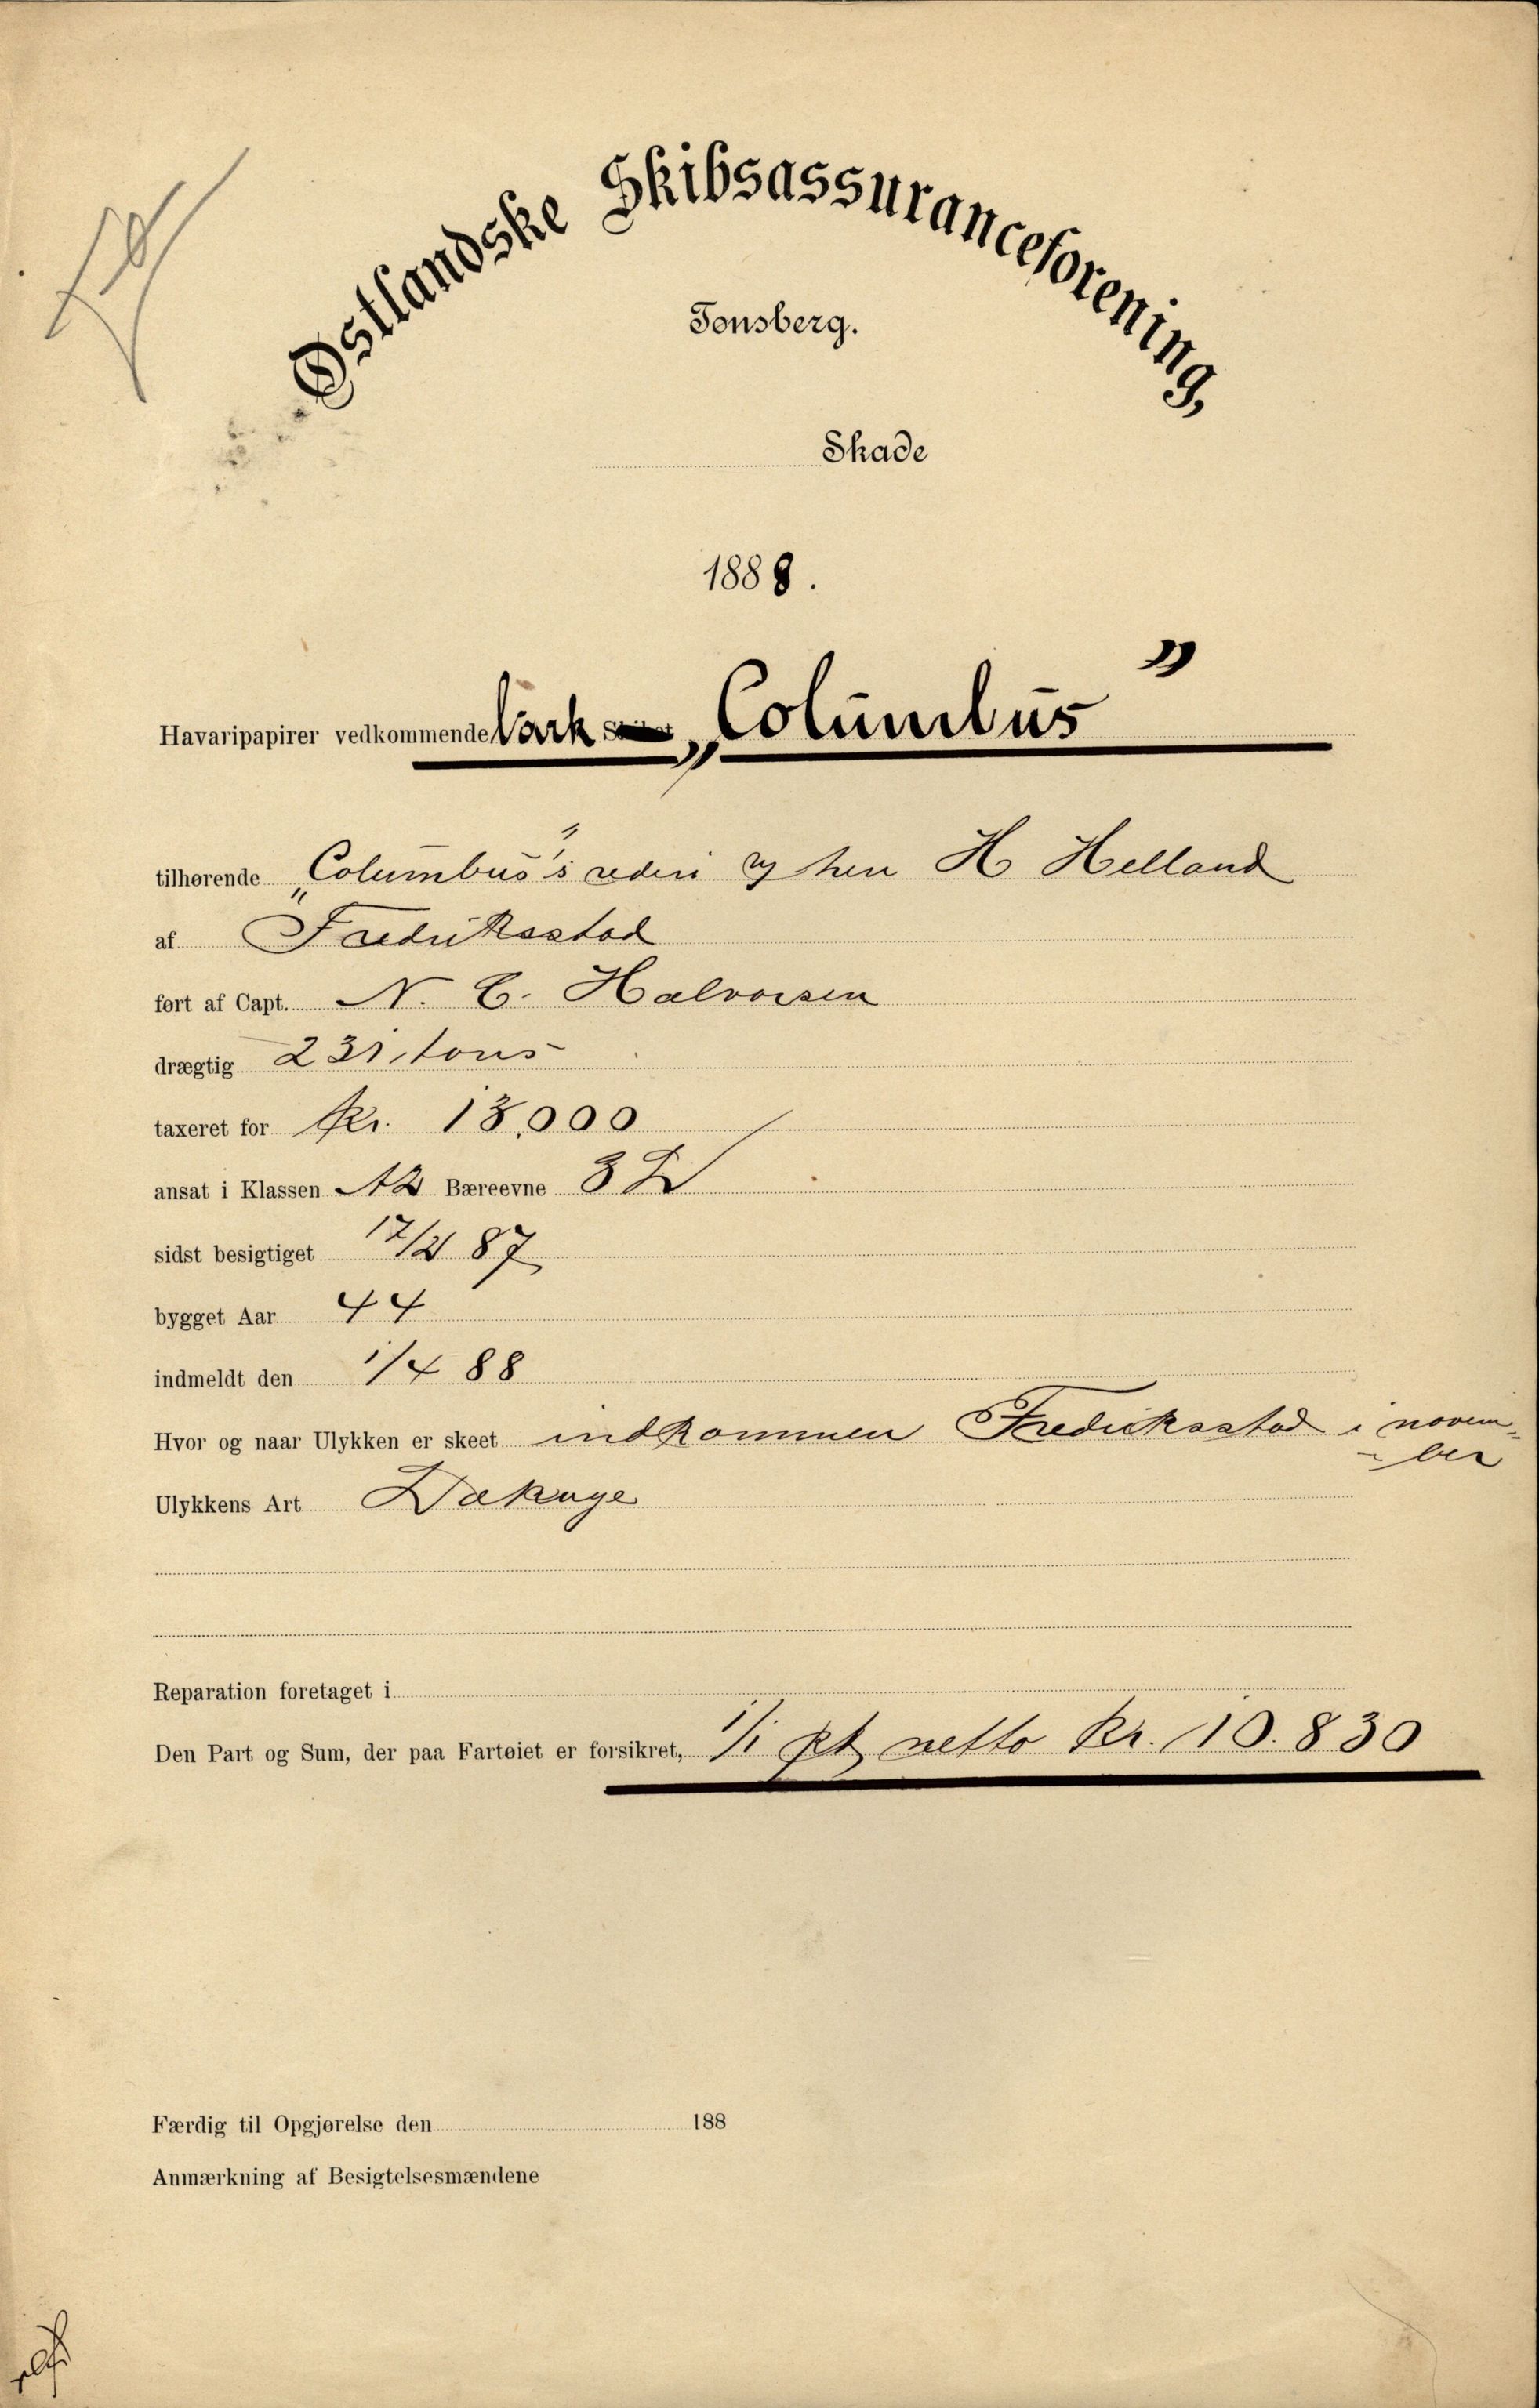 Østlandske Skibsassuranceforening,
Tønsberg.
Skade
1888.
Havaripapirer vedkommende Bark „Columbus”
tilhørende „Columbus”s rederi v/ herr H Helland
af Fredriksstad
ført af Capt. N. C. Halvorsen
drægtig 231 tons
taxeret for Kr. 13,000
ansat i Klassen A2 Bæreevne 3 L
sidst besigtiget 17/2 87
bygget Aar 44
indmeldt den 1/4 88
Hvor og naar Ulykken er skeet indkommen Fredriksstad i novem-
ber
Ulykkens Art Lækage
Reparation foretaget i
Den Part og Sum, der paa Fartøiet er forsikret, 1/1 pt netto Kr. 10.830
Færdig til Opgjørelse den 188
Anmærkning af Besigtelsesmændene